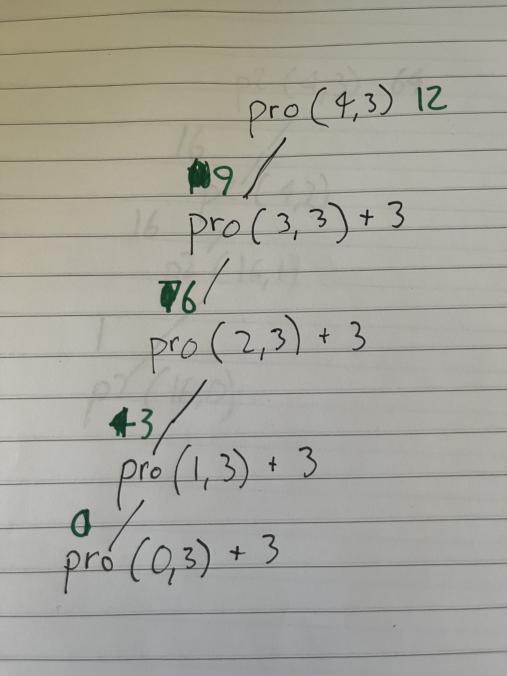 pro (4,3) 12
9
pro (3,3) + 3
6
pro (2,3) + 3
3
pro (1,3) + 3
0
pro (0,3) + 3